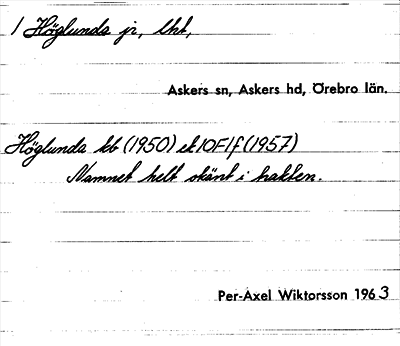 1 Höglunds jr, lht,
Askers sn, Askers hd, Örebro län.
Höglunda kb (1950) ek 10F1f (1957)
Namnet helt okänt i trakten.
Per-Axel Wiktorsson 1963